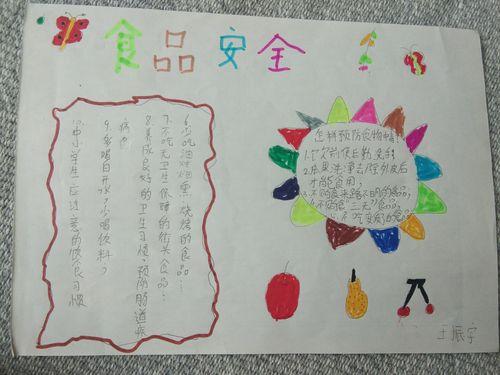 食品安全
6.少吃油炸烟熏、烧烤的食品…
7.不吃无卫生保障的街头食品…
8.养成良好的卫生习惯,预防肠道疾
病。
9.多喝白开水,少喝饮料,
10.中小学生应
的饮食习惯
怎样预防食物中毒?
1.饭前便后勤洗手
2.瓜果洗净去除外皮后
才能食用;
3.不购食来路不明的食品,
4.不购食“三无”食品;
5.不吃变质的食物
王振宇